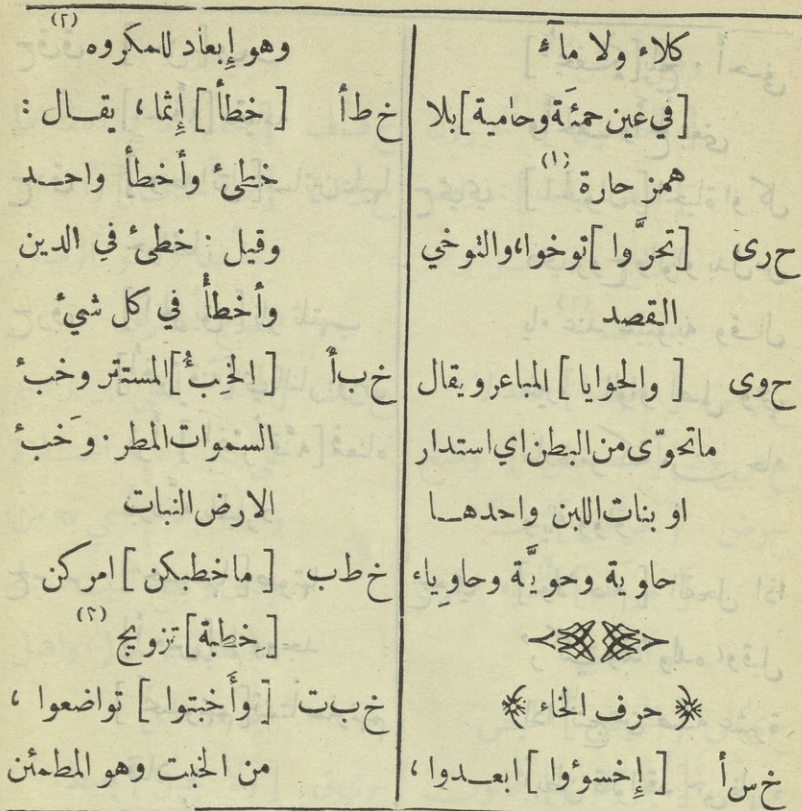 كلاء ولا مآء
[في عين حمئَة وحامية] بلا
همز حارة (١)
ح رى [تحرَّوا] توخوا، والتوخي
القصد
ح وى [والحوايا] المباعر ويقال
ماتحوّى من البطن اي استدار
او بنات اللبن واحدهـا
حاوية وحويَّة وحاوِياء
﴿ حرف الخاء ﴾
خ س أ [إِخسوُوا] ابعـدوا،
وهو إِبعاد للمكروه (٢)
خ ط أ [خطأ] إِثما، يقـال :
خطىء وأخطأ واحـد
وقيل : خطىء في الدين
وأخطأ في كل شيء
خ ب أ [الخِبءُ] المستتر وخبء
السموات المطر . وَخبء
الارض النبات
خ ط ب [ماخطبكن] امركن
[خِطبة] تزويج (٢)
خ ب ت [وأَخبتوا] تواضعوا ،
من الخبت وهو المطمئن